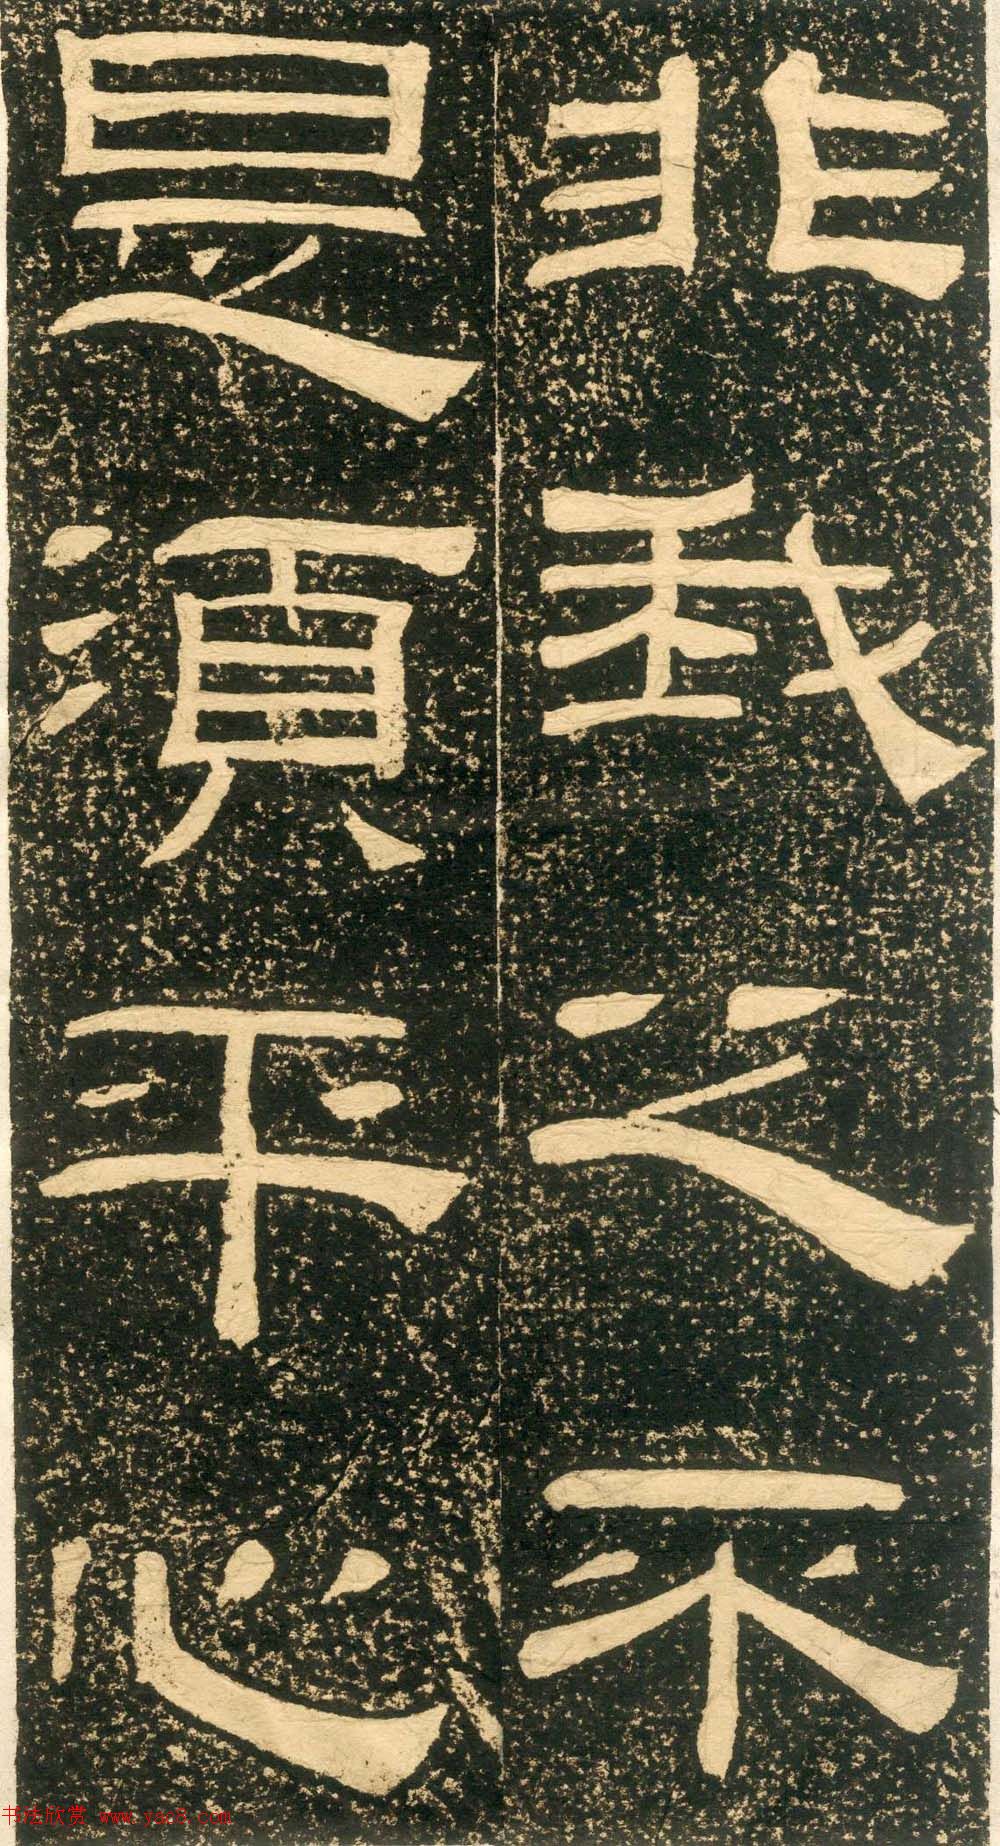 非我之不
是須平心
书法欣赏 www.yac8.com